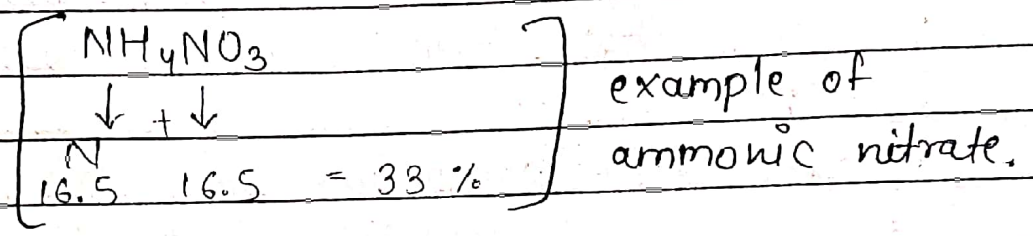 NH4NO3
↓ + ↓
N
16.5 16.5 = 33 %
example of
ammonic nitrate.